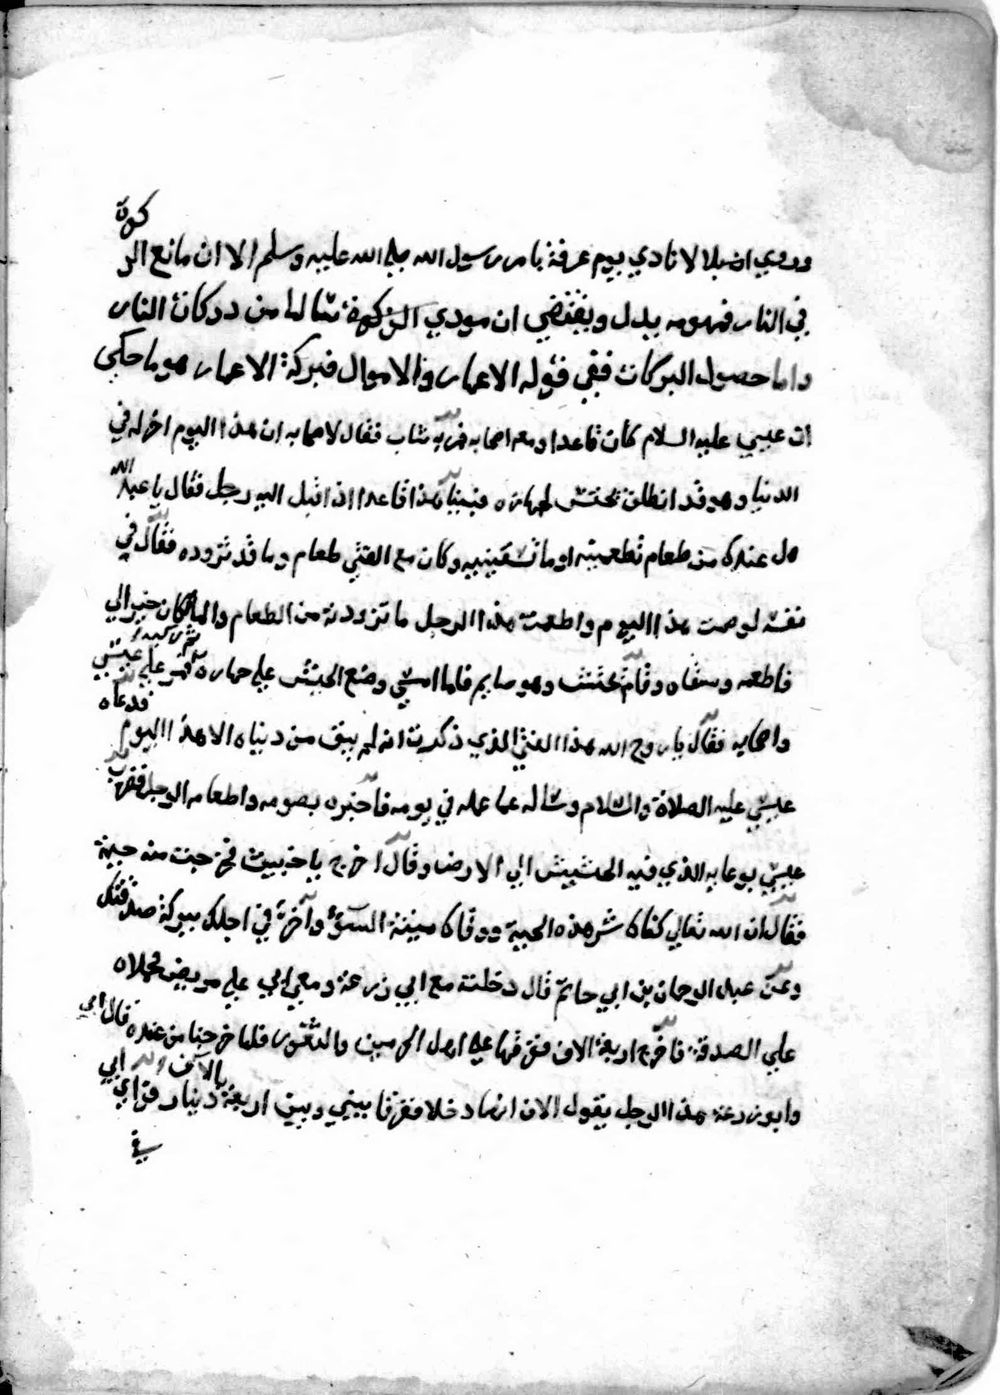 وروي ان بلالا نادي يوم عرفة بامر رسول الله صلي الله عليه وسلم الا ان مانع الزكوة
في النار فمفهومه يدل ويقتضي ان مودي الزكوة سالما من دركات النار
واما حصول البركات ففي قوله الاعمار والاموال فبركة الاعمار هو ما حكي
ان عيسي عليه السلام كان قاعدا ومعه اصحابه فمر به شاب فقال لاصحابه ان هذا اليوم اخر له في
الدنيا وهو قد انطلق يحتش لحماره فبينما هذا قاعدا اذ اقبل اليه رجل فقال يا عبد الله
هل عندك من طعام تطعمنيه او ما تسقينيه وكان مع الفتي طعام وما قد تزوده فقال في
نفسه لو صمت هذا اليوم واطعمت هذا الرجل ما تزودته من الطعام والما كان خير الي
فاطعمه وسقاه وقام يحتش وهو صايم فلما امسي وضع الحشيش علي حماره فمر علي عيسي
واصحابه فقال يا روح الله هذا الفتي الذي ذكرت انه لم يبق من دنياه الا هذا اليوم فدعاه
عيسي عليه الصلاة والسلام وساله عما عمله في يومه فاخبره بصومه واطعامه الرجل فضرب
عيسي بوعايه الذي فيه الحشيش الي الارض وقال اخرج يا خبيث فخرجت منه حية
فقال ان الله تعالي كفاك شر هذه الحية ووقاك ميتة السوء واخر في اجلك ببركة صدقتك
وعن عبد الرحمان بن ابي حاتم قال دخلت مع ابي زرعة ومعي ابي علي مريض فحملاه
علي الصدقة فاخرج اربعة الاف ففرقها علي اهل الحرمين والثغور فلما خرجنا من عنده قال ابي
وابو زرعة هذا الرجل يقول الان انما دخلا ففرقا بيني وبين اربعة الاف دينار فراي ابي
في